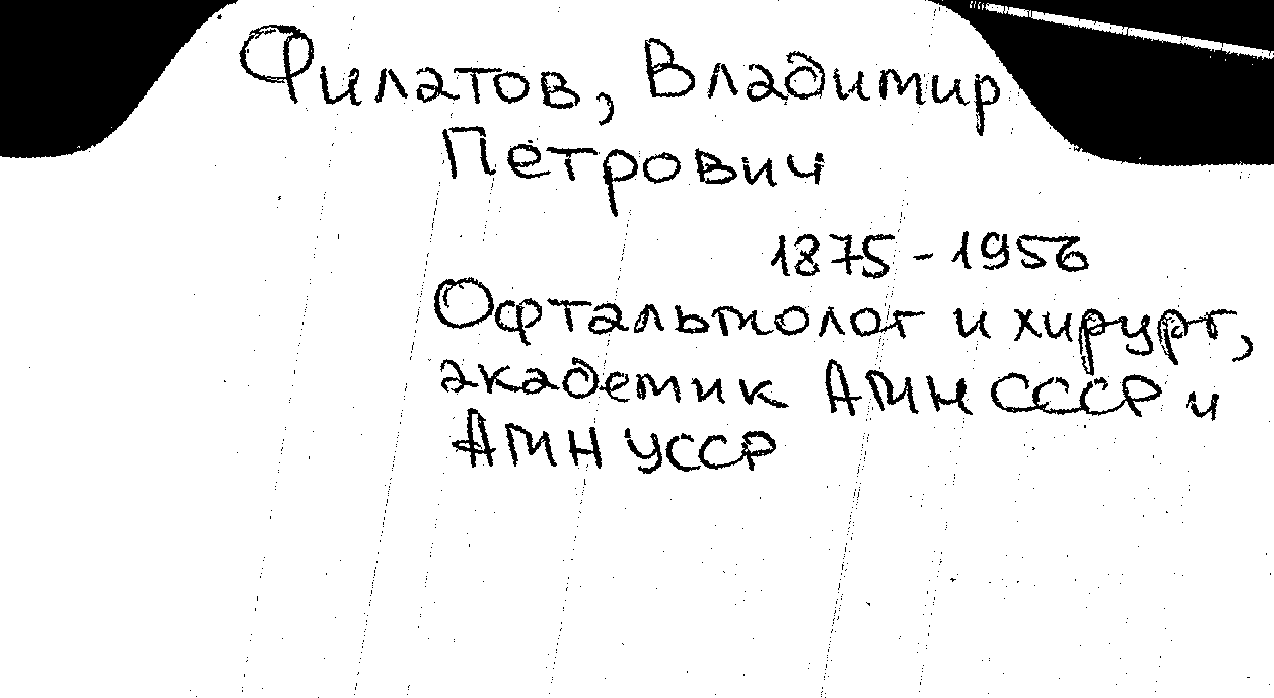 Филатов, Владимир
Петрович
1875-1956
Офтальмолог и хирург,
академик АМН СССР и
АМН УССР